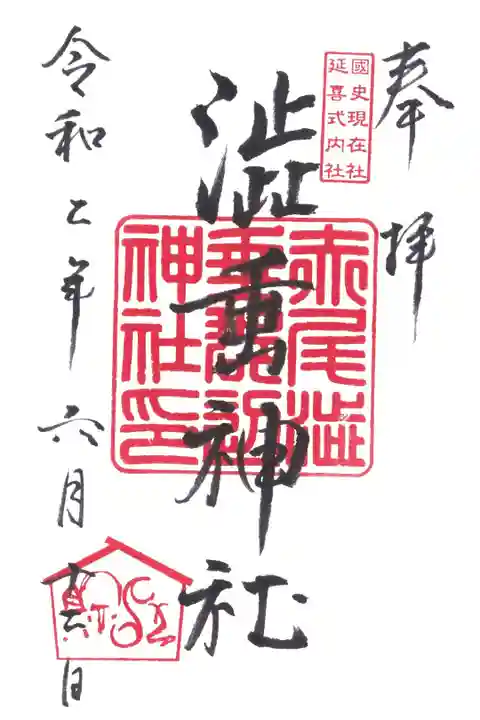 奉拝
國史現在社
延喜式内社
澁垂神社
赤尾澁
神社印
令和二年六月 日